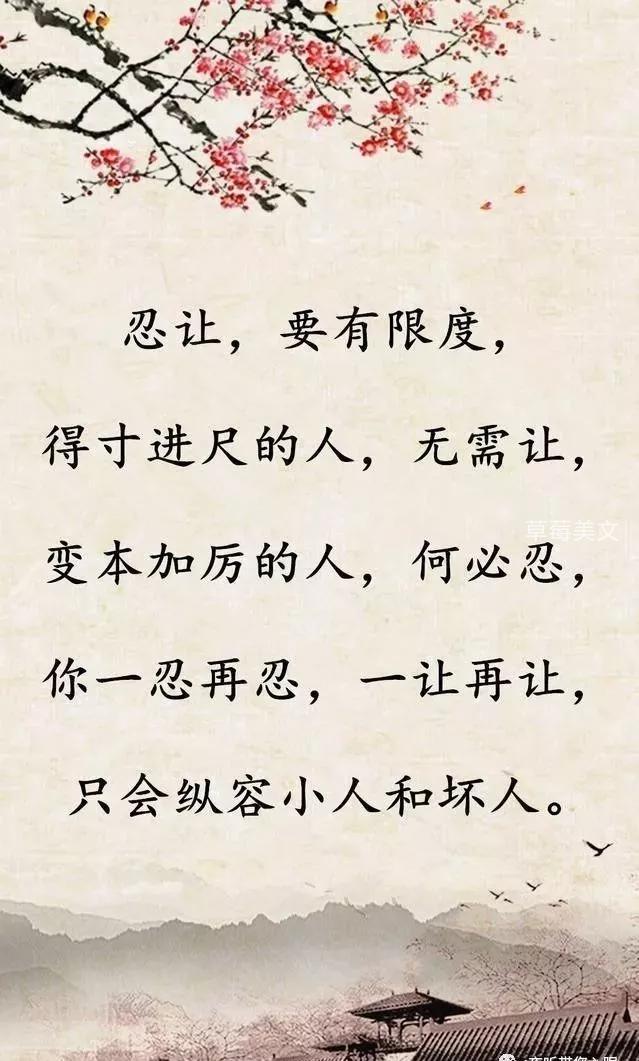 忍让，要有限度，
得寸进尺的人，无需让，
草莓美文
变本加厉的人，何必忍，
你一忍再忍，一让再让，
只会纵容小人和坏人。